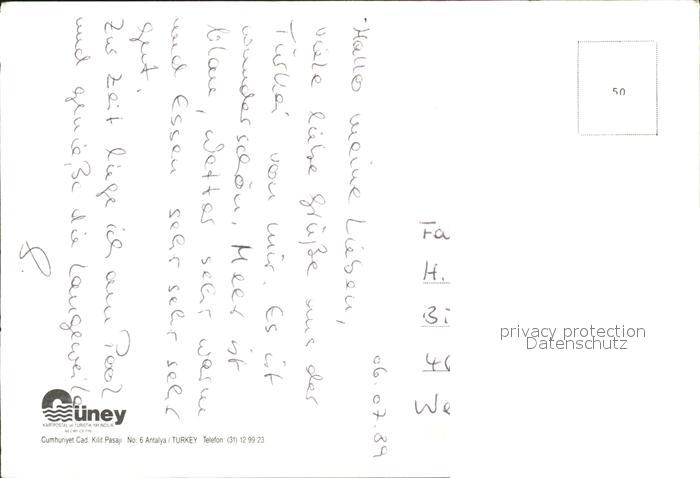 06.07.89
Hallo meine Lieben,
viele liebe Grüße aus der
Türkei von mir. Es ist
wunderschön. Meer ist
blau, Wetter sehr warm
und Essen sehr sehr sehr
gut.
Zur Zeit liege ich am Pool
und genieße die Langeweile
Fa
H.
Bi
We
50
privacy protection
Datenschutz
Güney
KARTPOSTAL ve TURİSTİK YAYINCILIK
Cumhuriyet Cad. Kilit Pasajı No: 6 Antalya / TURKEY Telefon: (31) 12 99 23